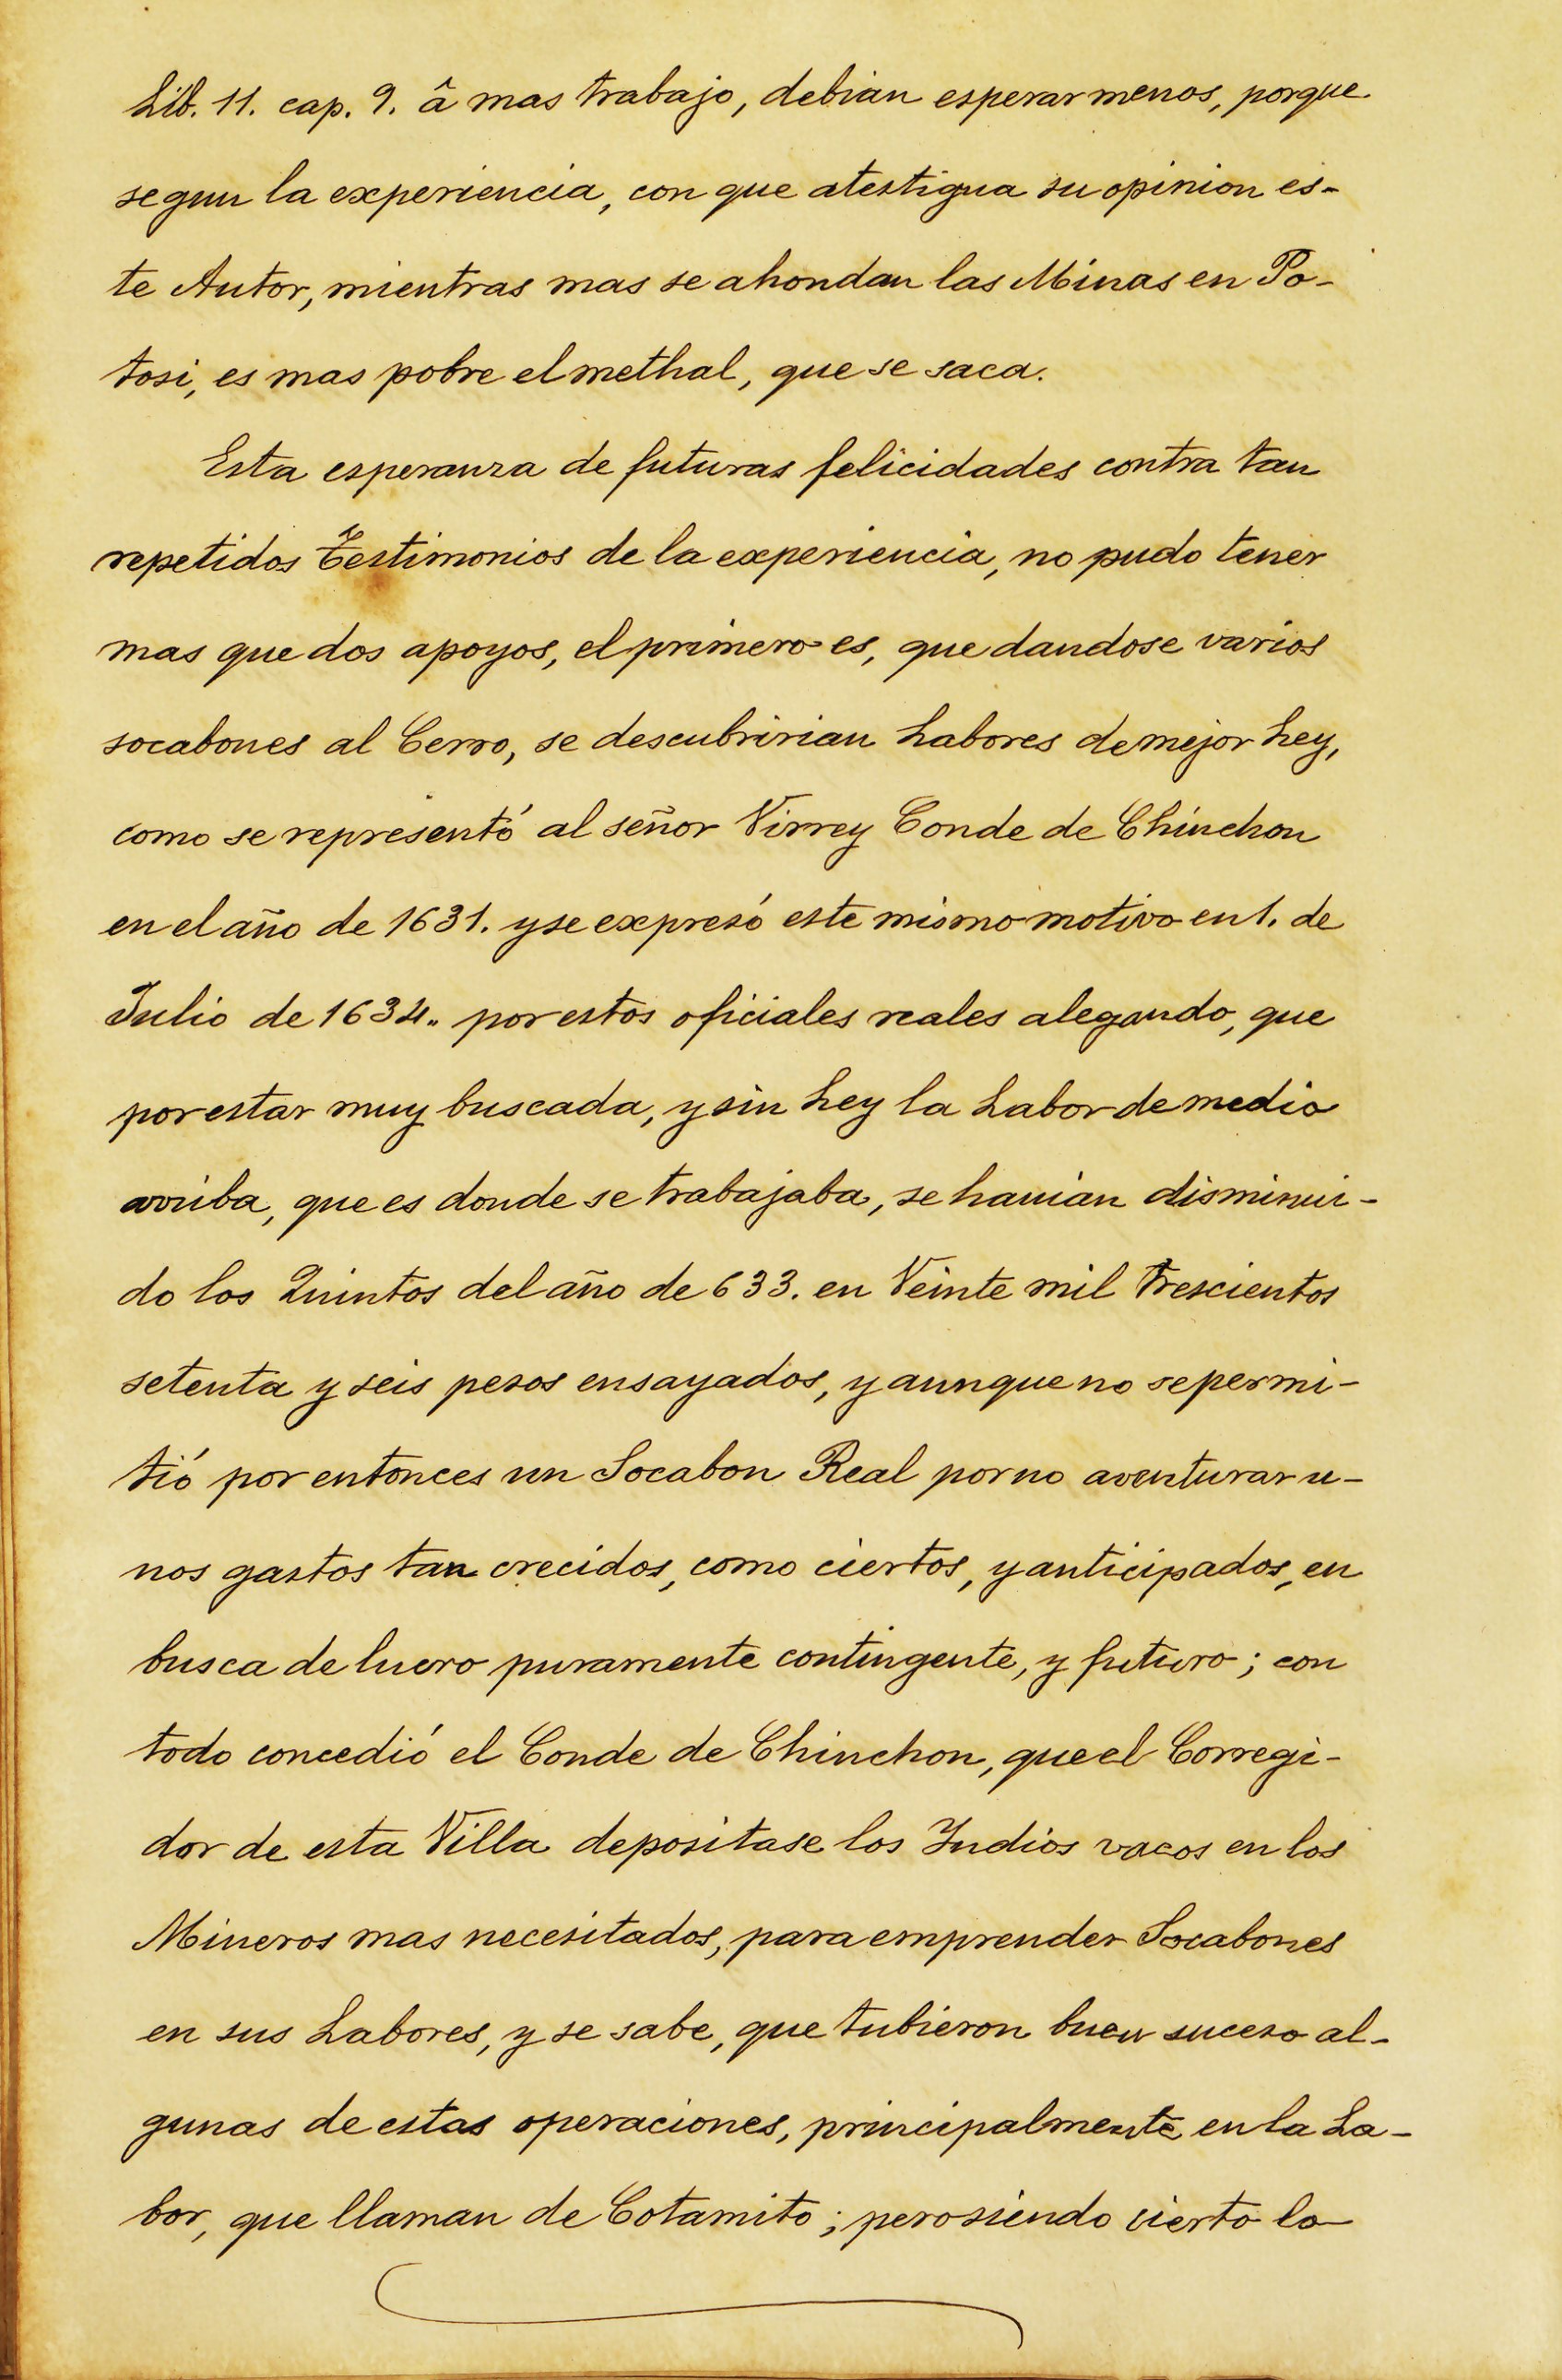 Lib. 11. cap. 9. â mas trabajo, debian esperar menos, porque
segun la experiencia, con que atestigua su opinion es-
te Autor, mientras mas se ahondan las Minas en Po-
tosi, es mas pobre el methal, que se saca.
Esta esperanza de futuras felicidades contra tan
repetidos Testimonios de la experiencia, no pudo tener
mas que dos apoyos, el primero es, que dandose varios
socabones al Cerro, se descubririan Labores de mejor Ley,
como se representó al señor Virrey Conde de Chinchon
en el año de 1631. y se expresó este mismo motivo en 1. de
Julio de 1634. por estos oficiales reales alegando, que
por estar muy buscada, y sin Ley la Labor de medio
arriba, que es donde se trabajaba, se havian disminui-
do los Quintos del año de 633. en Veinte mil trescientos
setenta y seis pesos ensayados, y aunque no se permi-
tió por entonces un Socabon Real por no aventurar u-
nos gastos tan crecidos, como ciertos, y anticipados, en
busca de lucro puramente contingente, y futuro; con
todo concedió el Conde de Chinchon, que el Corregi-
dor de esta Villa depositase los Indios vacos en los
Mineros mas necesitados, para emprender Socabones
en sus Labores, y se sabe, que tubieron buen suceso al-
gunas de estas operaciones, principalmente en la La-
bor, que llaman de Cotamito; pero siendo cierto lo